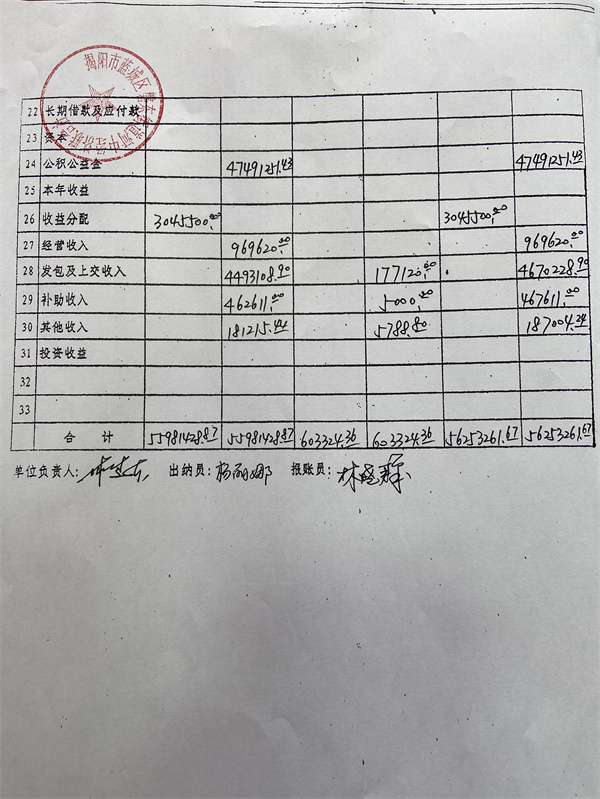 揭阳市蓝城区
22 长期借款及应付款
23 资本
24 公积公益金 47491251.43 47491251.43
25 本年收益
26 收益分配 3045500.00 3045500.00
27 经营收入 969620.00 969620.00
28 发包及上交收入 4493108.90 177120.00 4670228.90
29 补助收入 462611.00 5000.00 467611.00
30 其他收入 181215.44 5788.80 187004.24
31 投资收益
32
33
合 计 55981428.87 55981428.87 603324.36 603324.36 56253261.67 56253261.67
单位负责人: 出纳员:杨丽娜 报账员: